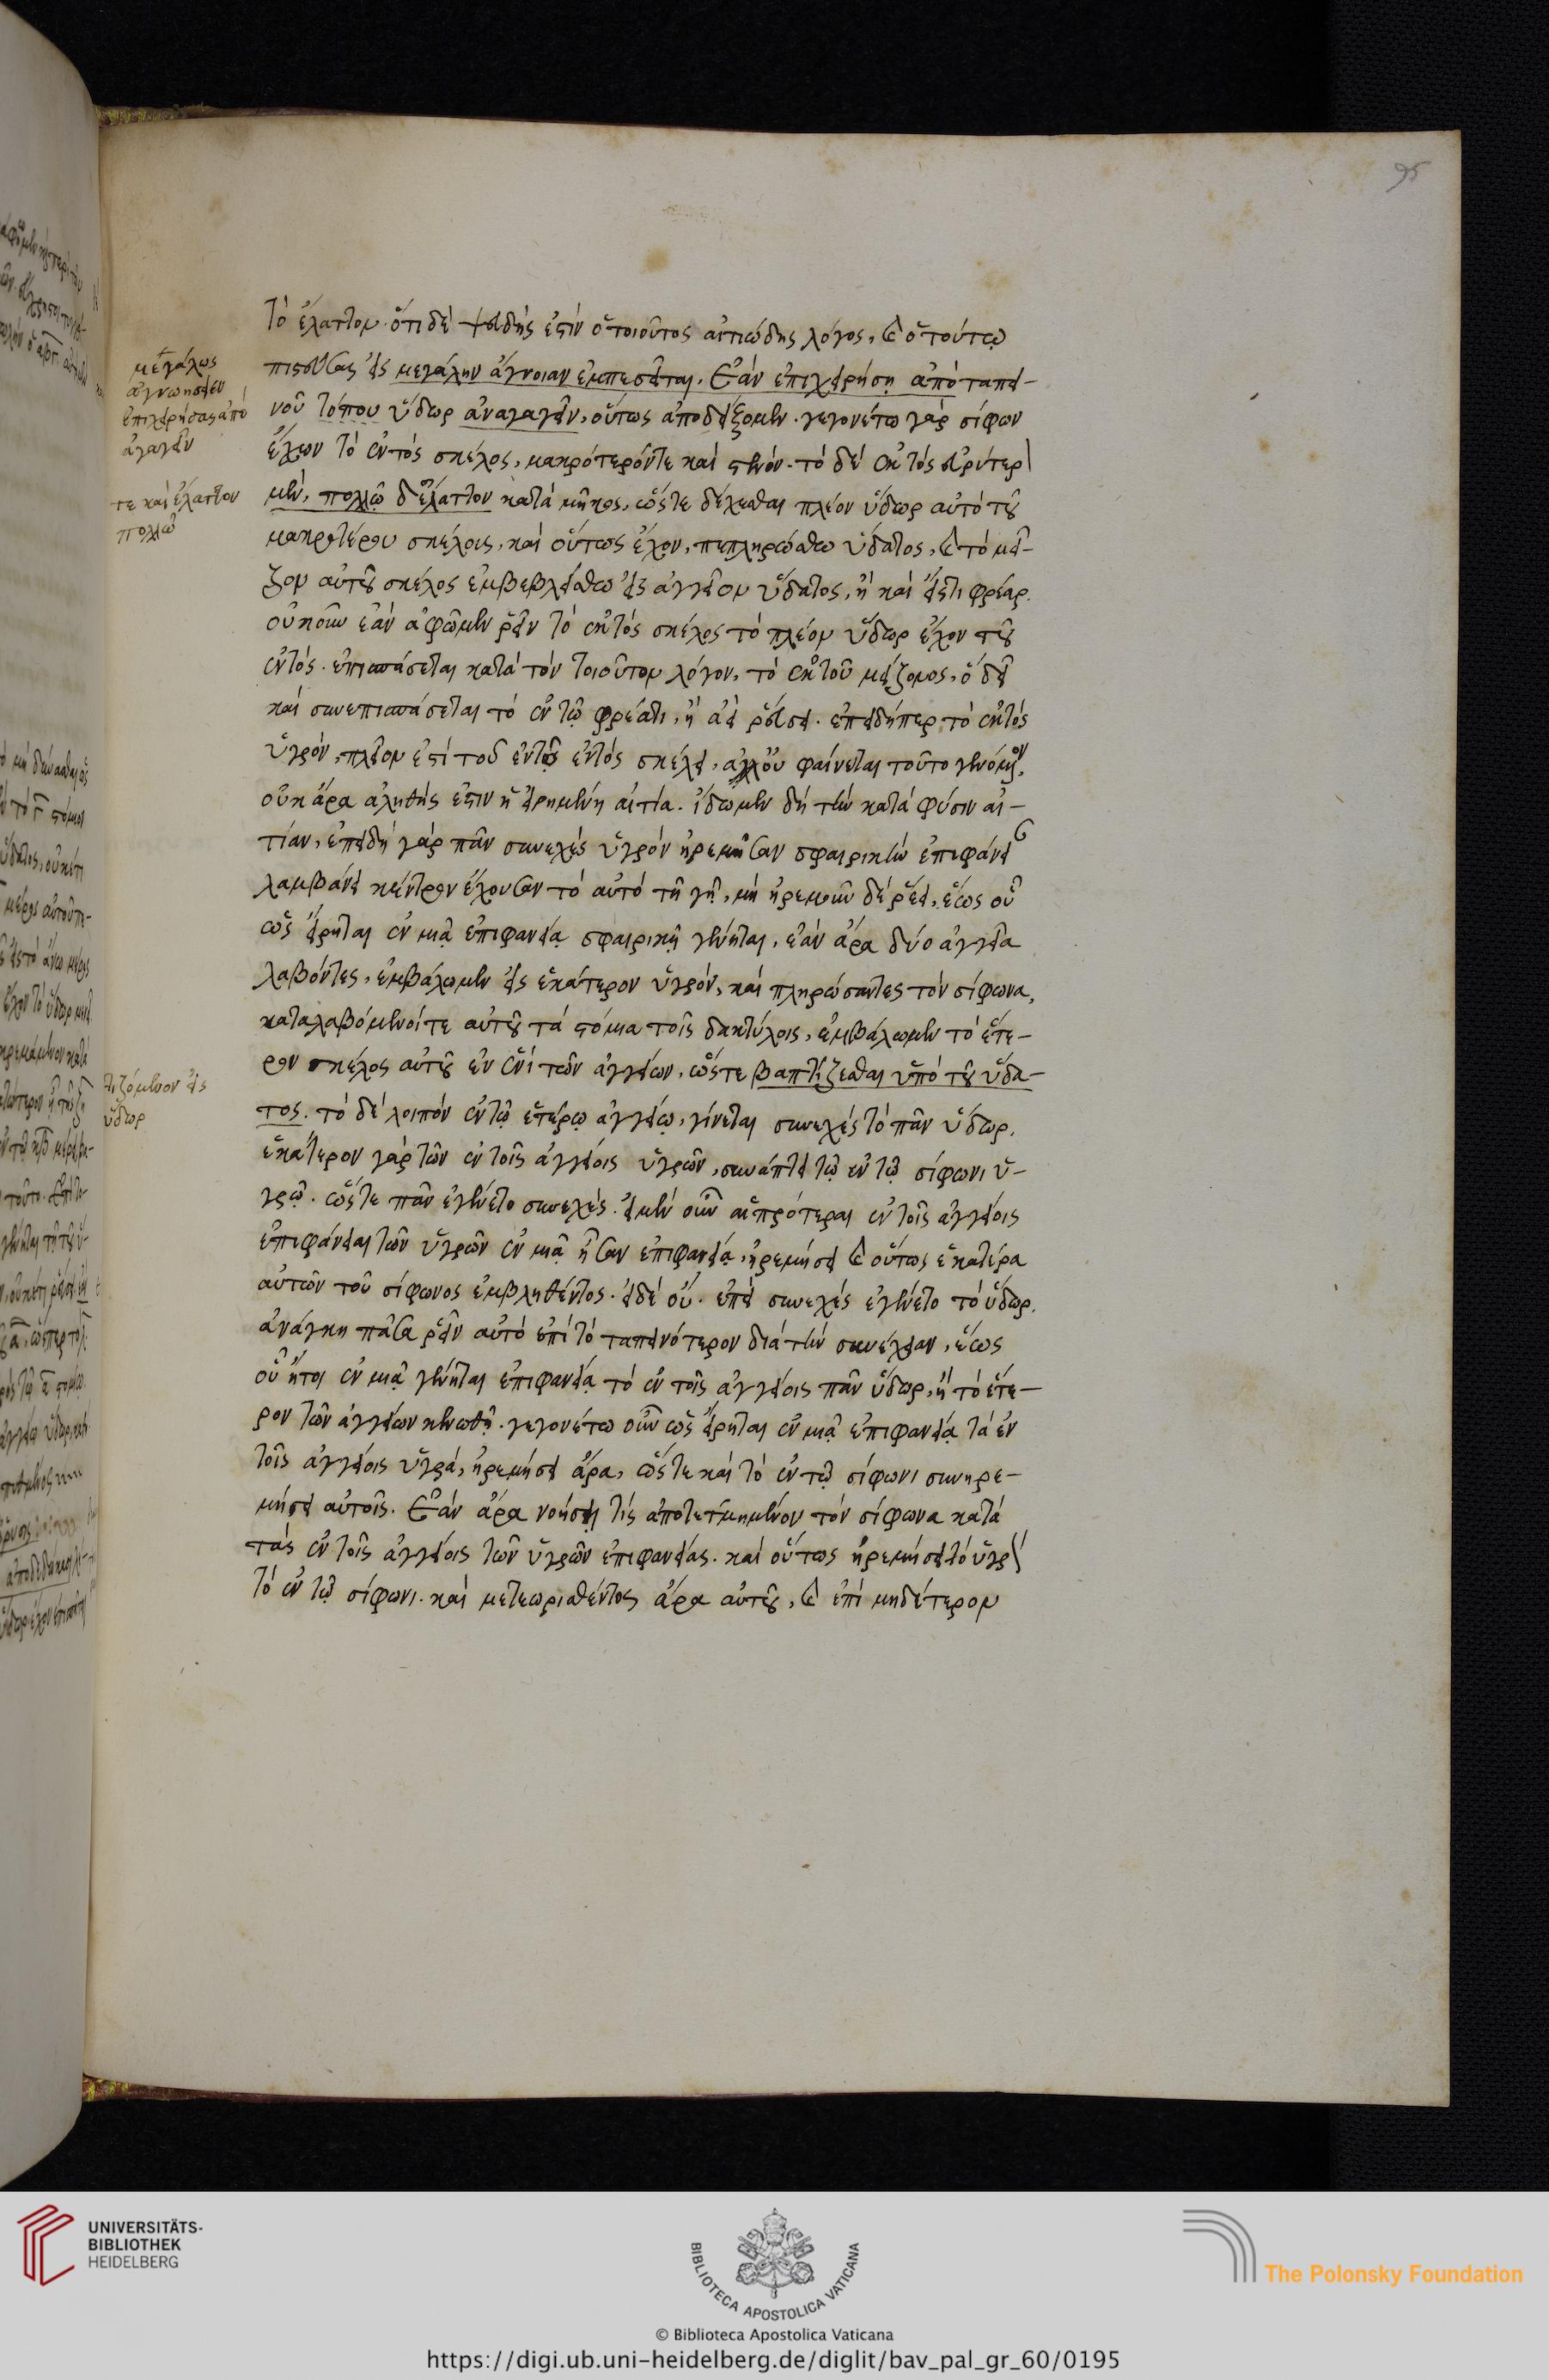 95
τὸ ἔλαττον. ὅτι δὲ ψευδής ἐστιν ὁ τοιοῦτος αἰτιώδης λόγος, καὶ ὁ τούτῳ
πιστεύσας εἰς μεγάλην ἄγνοιαν ἐμπεσεῖται. Ἐὰν ἐπιχειρήσῃ ἀπὸ ταπει-
νοῦ τόπου ὕδωρ ἀναγαγεῖν, οὕτως ἀποδείξομεν. γεγονέτω γὰρ σίφων
ἔχων τὸ ἐντὸς σκέλος, μακρότερόν τε καὶ στενόν. τὸ δὲ ἐκτὸς εὐρύτερ
μὲν, πολλῷ δ' ἔλαττον κατὰ μῆκος, ὥστε δέχεσθαι πλέον ὕδωρ αὐτὸ τοῦ
μακροτέρου σκέλους, καὶ οὕτως ἔχον, πεπληρώσθω ὕδατος, καὶ τὸ μεῖ-
ζον αὐτοῦ σκέλος ἐμβεβλείσθω εἰς ἀγγεῖον ὕδατος, ἢ καὶ εἴς τι φρέαρ.
οὐκοῦν ἐὰν ἀφῶμεν ῥεῖν τὸ ἐκτὸς σκέλος τὸ πλέον ὕδωρ ἔχον τοῦ
ἐντός. ἐπισπάσεται κατὰ τὸν τοιοῦτον λόγον, τὸ ἐκ τοῦ μείζονος, ὃ δεῖ
καὶ συνεπισπάσεται τὸ ἐν τῷ φρέατι, ἢ ἀεὶ ῥεύσει. ἐπειδήπερ τὸ ἐκτὸς
ὑγρόν, πλεῖον ἐστὶ τοῦ ἐντὸς σκέλει, ἀλλ' οὐ φαίνεται τοῦτο γενόμενον,
οὐκ ἄρα ἀληθής ἐστιν ἡ εἰρημένη αἰτία. ἴδωμεν δὴ τὴν κατὰ φύσιν αἰ-
τίαν, ἐπειδὴ γὰρ πᾶν συνεχὲς ὑγρὸν ἠρεμῆσαν σφαιρικὴν ἐπιφάνει
λαμβάνει κέντρον ἔχουσαν τὸ αὐτὸ τῇ γῇ, μὴ ἠρεμοῦν δὲ ῥέει, ἕως οὗ
ὡς εἴρηται ἐν μιᾷ ἐπιφανείᾳ σφαιρικῇ γένηται, ἐὰν ἄρα δύο ἀγγεῖα
λαβόντες, ἐμβάλωμεν εἰς ἑκάτερον ὑγρόν, καὶ πληρώσαντες τὸν σίφωνα,
καταλαβόμενοί τε αὐτοῦ τὰ στόμια τοῖς δακτύλοις, ἐμβάλωμεν τὸ ἕτε-
ρον σκέλος αὐτοῦ ἐν ἑνὶ τῶν ἀγγείων, ὥστε βαπτίζεσθαι ὑπὸ τοῦ ὕδα-
τος. τὸ δὲ λοιπὸν ἐν τῷ ἑτέρῳ ἀγγείῳ, γίνεται συνεχὲς τὸ πᾶν ὕδωρ.
ἑκάτερον γὰρ τῶν ἐν τοῖς ἀγγείοις ὑγρῶν, συνάπτει τῷ ἐν τῷ σίφωνι ὑ-
γρῷ. ὥστε πᾶν ἐγένετο συνεχές. εἰ μὲν οὖν αἱ πρότεραι ἐν τοῖς ἀγγείοις
ἐπιφάνειαι τῶν ὑγρῶν ἐν μιᾷ ἦσαν ἐπιφανείᾳ, ἠρεμήσει καὶ οὕτως ἑκατέρα
αὐτῶν τοῦ σίφωνος ἐμβληθέντος. εἰ δὲ οὔ. ἐπεὶ συνεχὲς ἐγένετο τὸ ὕδωρ.
ἀνάγκη πᾶσα ῥεῖν αὐτὸ ἐπὶ τὸ ταπεινότερον διὰ τὴν συνέχειαν, ἕως
οὗ ἤτοι ἐν μιᾷ γένηται ἐπιφανείᾳ τὸ ἐν τοῖς ἀγγείοις πᾶν ὕδωρ, ἢ τὸ ἕτε-
ρον τῶν ἀγγείων κενωθῇ. γεγονέτω οὖν ὡς εἴρηται ἐν μιᾷ ἐπιφανείᾳ τὰ ἐν
τοῖς ἀγγείοις ὑγρά, ἠρεμήσει ἄρα, ὥστε καὶ τὸ ἐν τῷ σίφωνι συνηρε-
μήσει αὐτοῖς. Ἐὰν ἄρα νοήσῃ τίς ἀποτετμημένον τὸν σίφωνα κατὰ
τὰς ἐν τοῖς ἀγγείοις τῶν ὑγρῶν ἐπιφανείας. καὶ οὕτως ἠρεμήσει τὸ ὑγρ
τὸ ἐν τῷ σίφωνι. καὶ μετεωρισθέντος ἄρα αὐτοῦ, καὶ ἐπὶ μηδέτερον
μεγάλως
ἀγνωήσειεν
ἐπιχειρήσας ἀπὸ
ἀγαγεῖν
τε καὶ ἔλαττον
πολλῷ
τιζόμενον εἰς
ὕδωρ
UNIVERSITÄTS-
BIBLIOTHEK
HEIDELBERG
BIBLIOTECA APOSTOLICA VATICANA
© Biblioteca Apostolica Vaticana
The Polonsky Foundation
https://digi.ub.uni-heidelberg.de/diglit/bav_pal_gr_60/0195